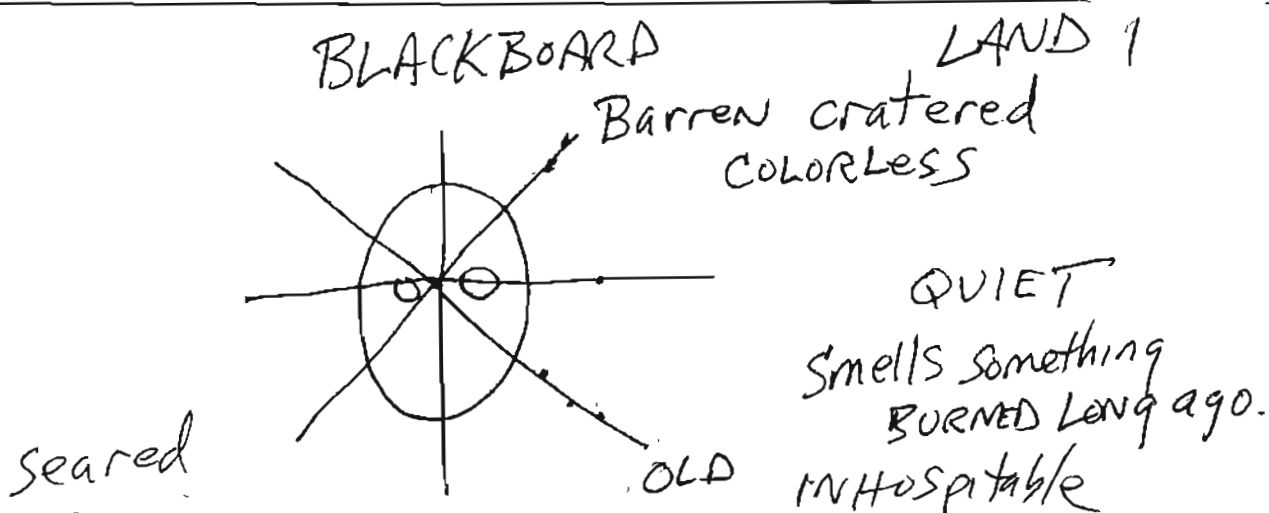 BLACKBOARD
LAND 1
Barren cratered
COLORLESS
QUIET
Smells something
BURNED LONg ago.
seared
OLD
INHOSpitable